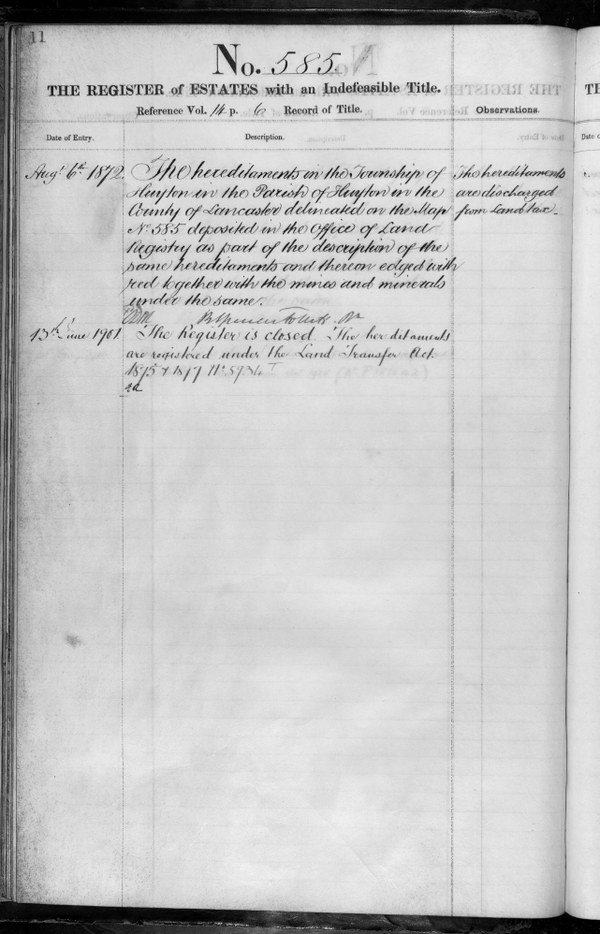 11
No. 585
THE REGISTER of ESTATES with an Indefeasible Title.
Reference Vol. 14 p. 6 Record of Title.
Observations.
Date of Entry.
Description.
Augt. 6th 1872.
The hereditaments in the Township of
Huyton in the Parish of Huyton in the
County of Lancaster delineated on the Map
No 585 deposited in the Office of Land
Registry as part of the description of the
same hereditaments and thereon edged with
red together with the mines and minerals
under the same.
The hereditaments
are discharged
from Land tax.
13th June 1901
The Register is closed. The hereditaments
are registered under the Land Transfer Act
1875 &